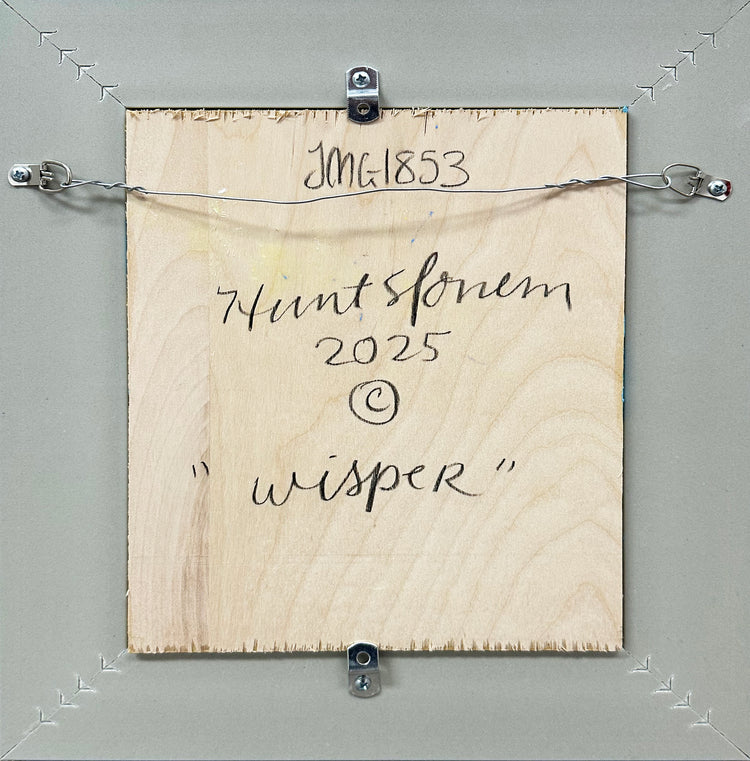 JMG1853
Hunt Slonem
2025
©
" WISPER "